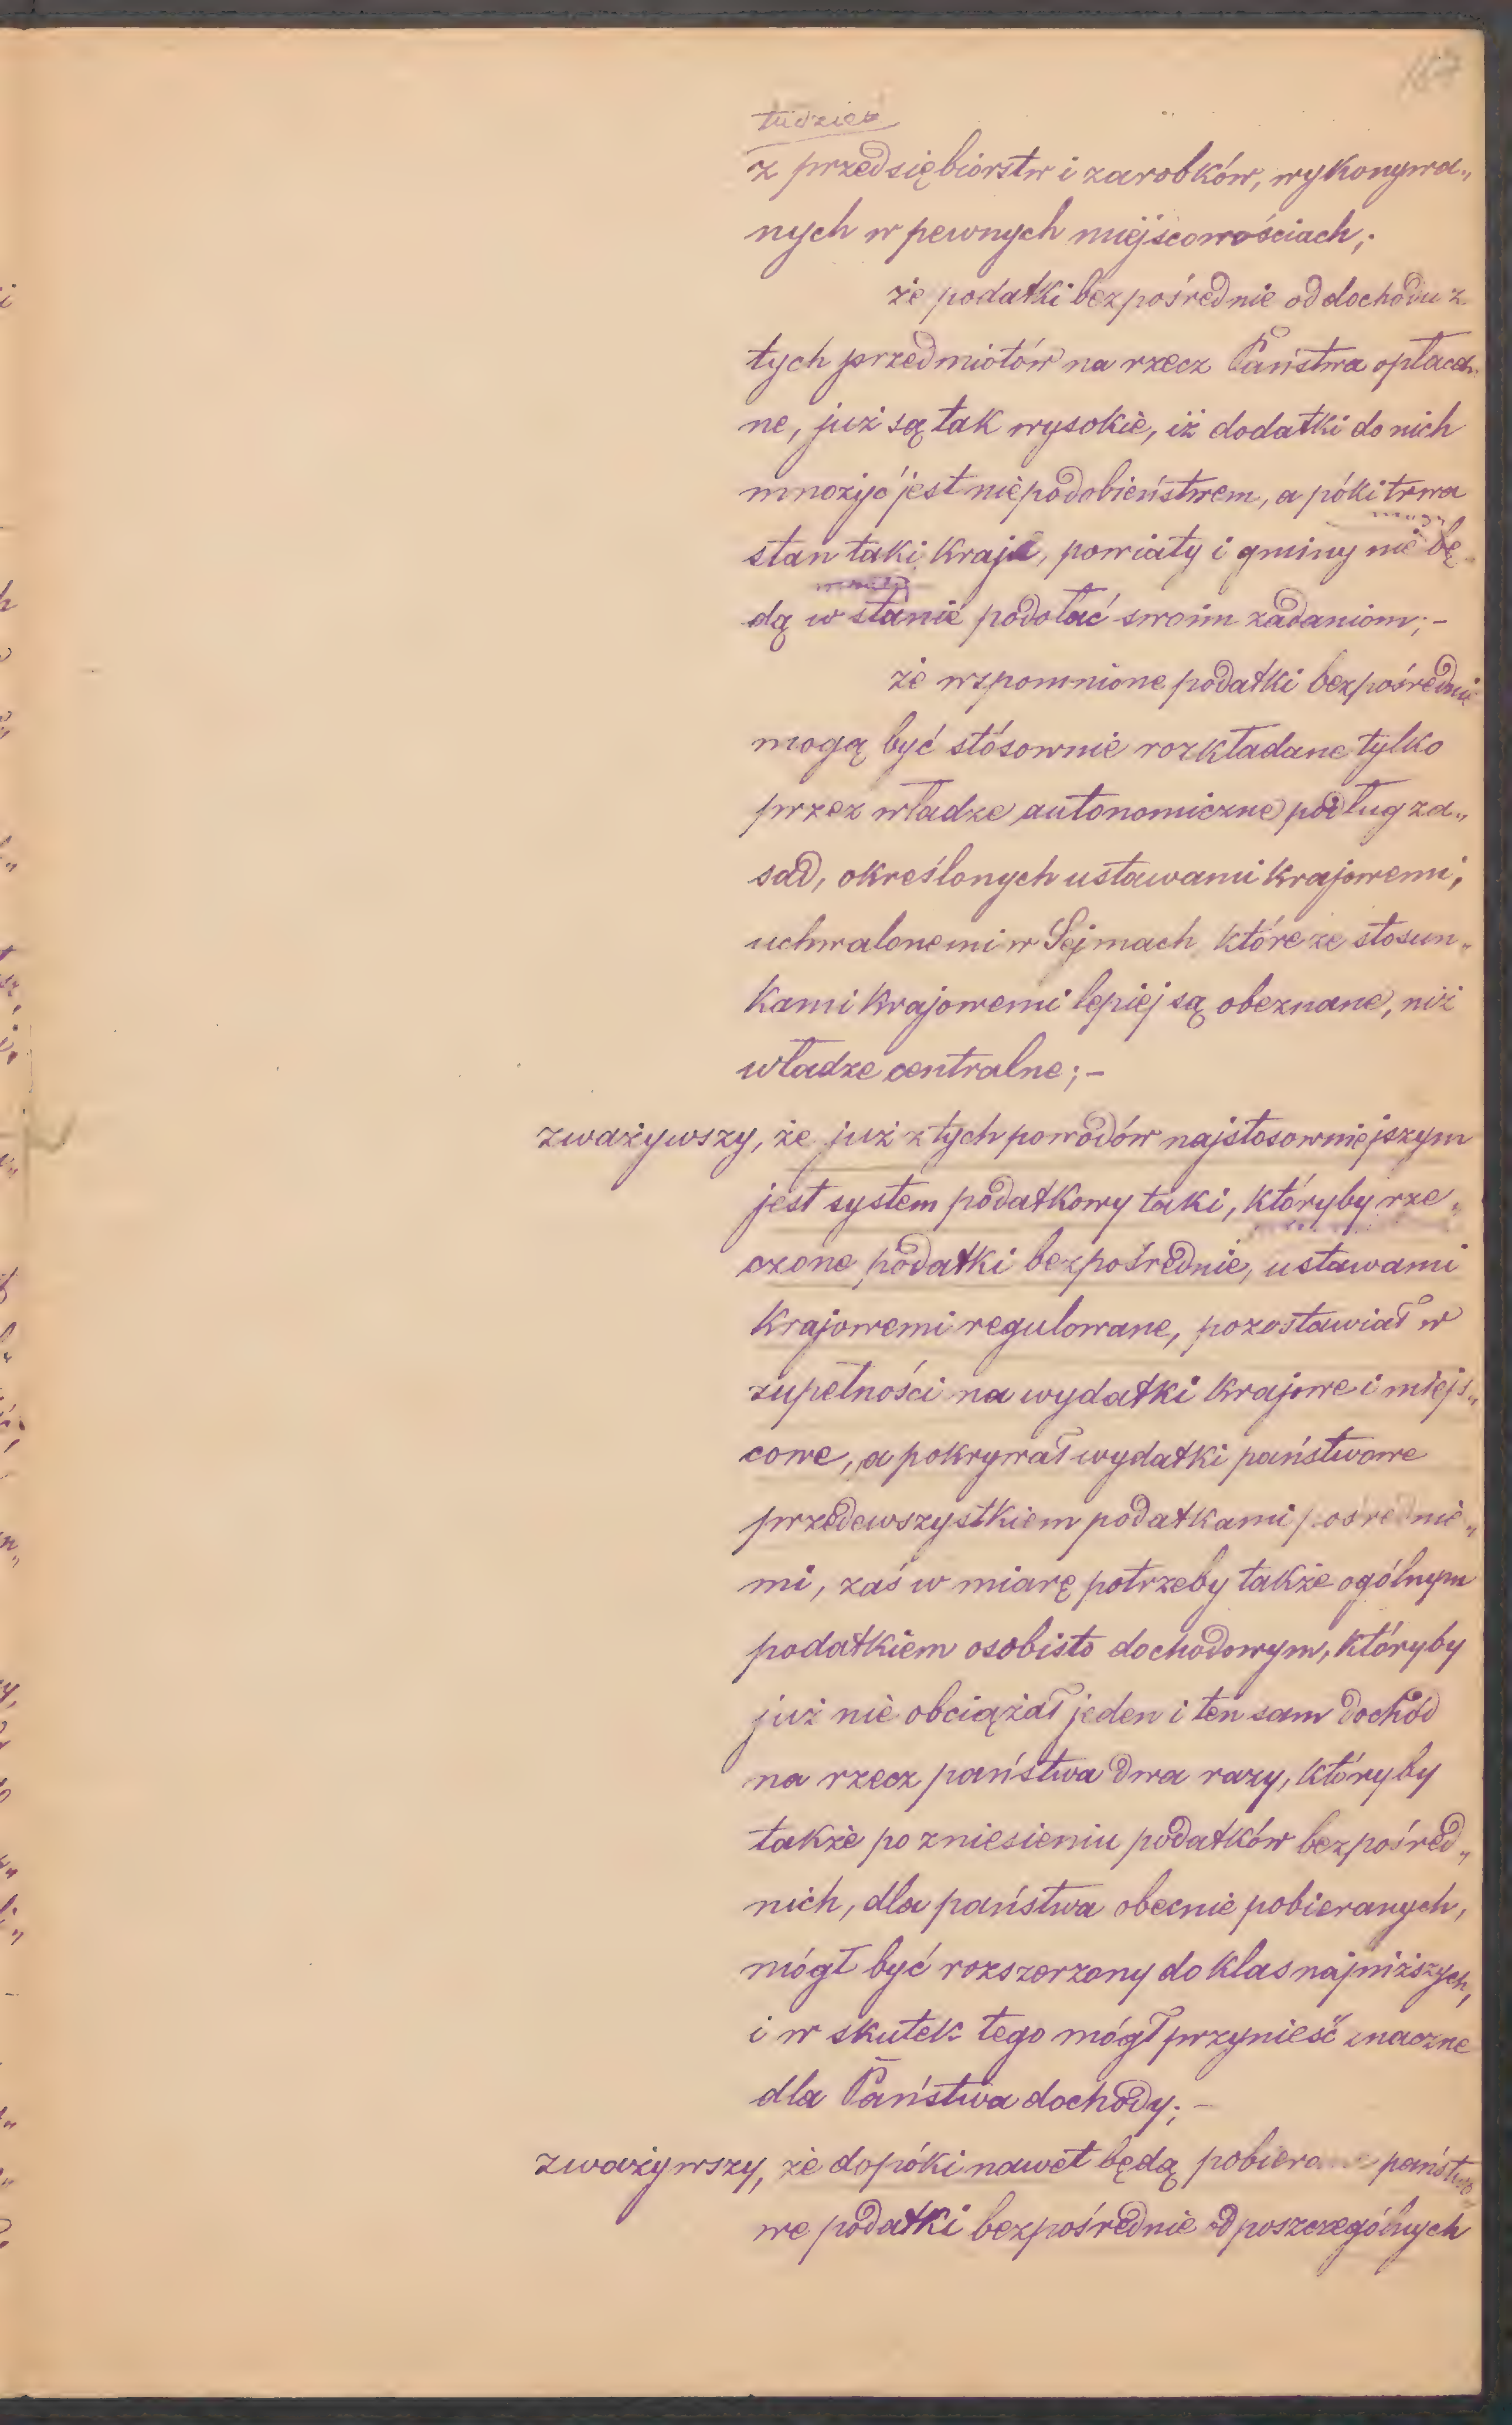 tudzież
z przedsiębiorstw i zarobków, wykonywa„
nych w pewnych miejscowościach;
że podatki bezpośrednie od dochodu z
tych przedmiotów na rzecz Państwa opłaca„
ne, już są tak wysokie, iż dodatki do nich
mnożyć jest niepodobieństwem, a póki trwa
stan taki kraje, powiaty i gminy nie bę„
dą w stanie podołać swoim zadaniom;–
że wspomnione podatki bezpośrednie
mogą być stósownie rozkładane tylko
przez władze autonomiczne podług za„
sad, określonych ustawami krajowemi,
uchwalonemi w Sejmach, które ze stosun„
kami krajowemi lepiej są obeznane, niż
władze centralne;–
zważywszy, że już z tych powodów najstosowniejszym
jest system podatkowy taki, któryby rze„
czone podatki bezpośrednie, ustawami
krajowemi regulowane, pozostawiał w
zupełności na wydatki krajowe i miejs„
cowe, a pokrywał wydatki państwowe
przedewszystkiem podatkami pośrednie„
mi, zaś w miarę potrzeby także ogólnym
podatkiem osobisto dochodowym, któryby
już nie obciążał jeden i ten sam dochód
na rzecz państwa dwa razy, któryby
także po zniesieniu podatków bezpośred„
nich, dla państwa obecnie pobieranych,
mógł być rozszerzony do klas najniższych,
i w skutek tego mógł przynieść znaczne
dla Państwa dochody;–
zważywszy, że dopóki nawet będą pobierane państwo
we podatki bezpośrednie od poszczególnych